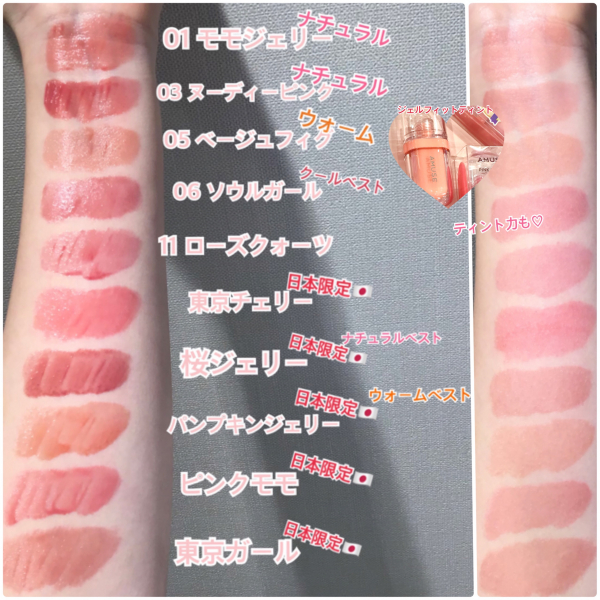 01 モモジェリー
ナチュラル
03 ヌーディーピンク
ナチュラル
05 ベージュフィグ
ウォーム
06 ソウルガール
クールベスト
11 ローズクォーツ
東京チェリー
日本限定🇯🇵
桜ジェリー
日本限定🇯🇵
ナチュラルベスト
パンプキンジェリー
日本限定🇯🇵
ウォームベスト
ピンクモモ
日本限定🇯🇵
東京ガール
日本限定🇯🇵
ジェルフィットティント
AMUSE
ティント力も♡